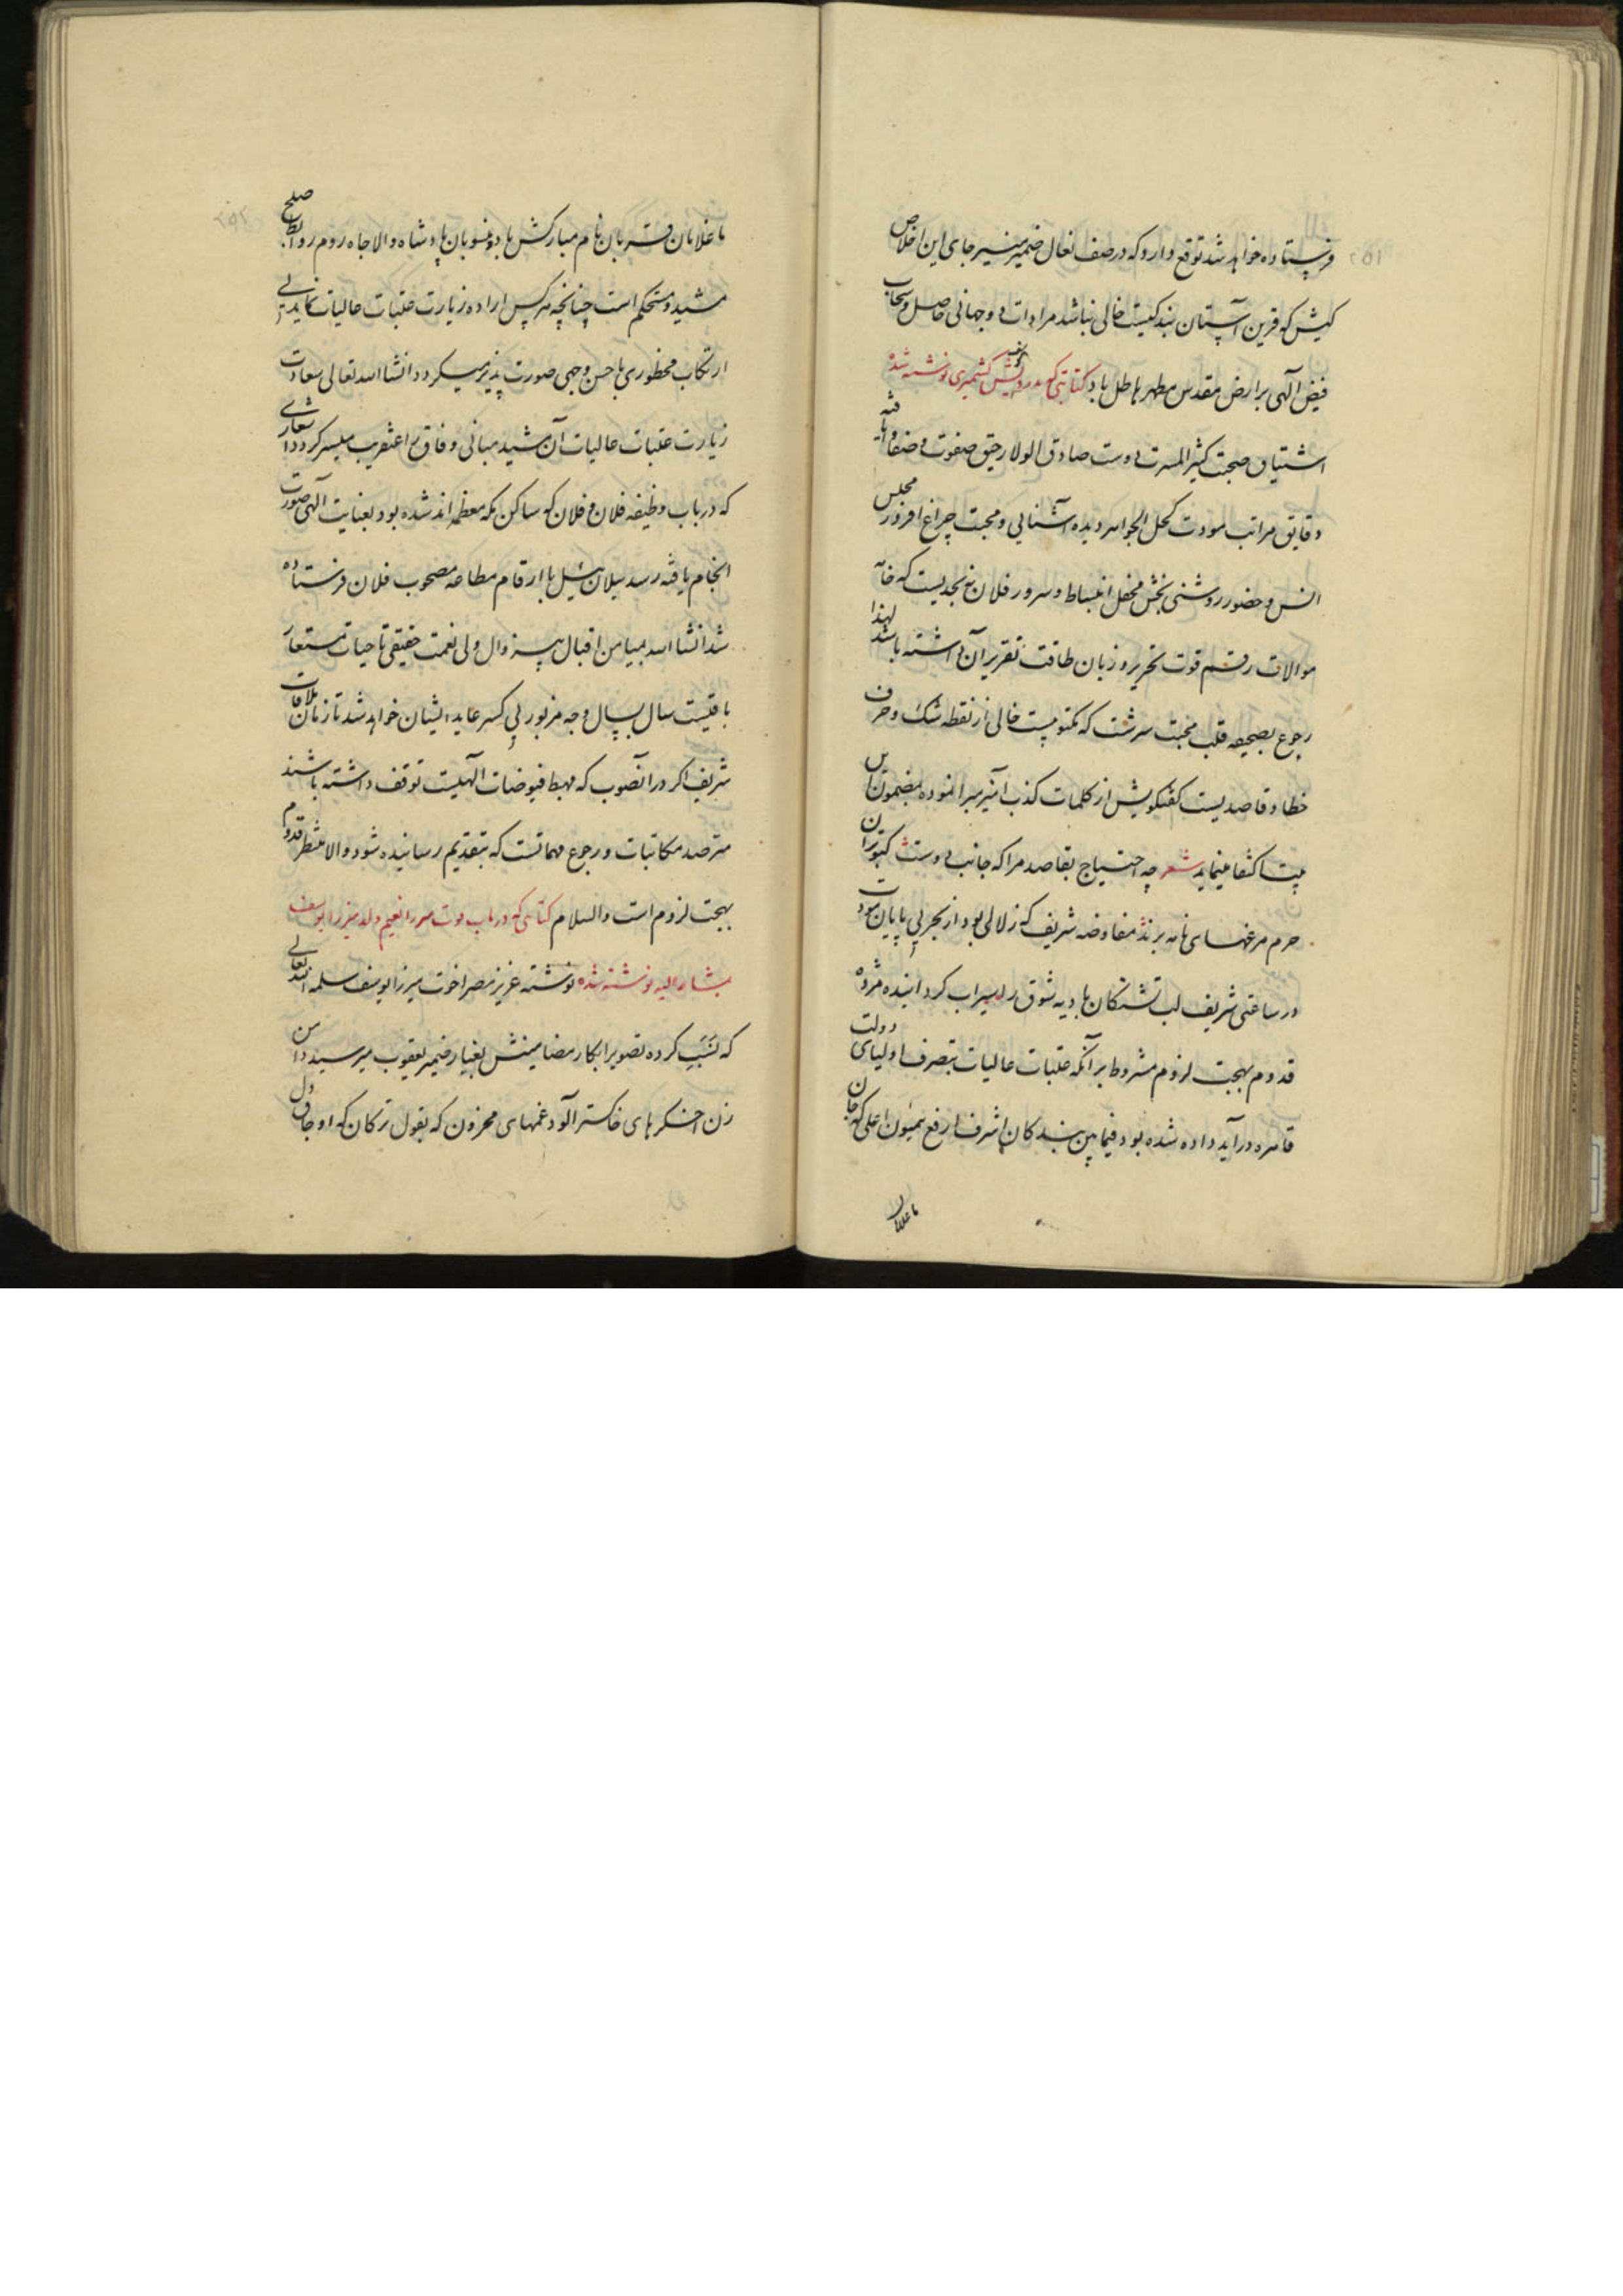 ۲۵۱
فرستاده خواهد شد توقع دارد که در صف نعال ضمیر منیر جای این اخلاص
کیش که قرین آستان بندگیست خالی نباشد مرادات دوجهانی حاصل و سحاب
فیض الهی بر ارض مقدس مطهر هاطل باد کتابتی که به درویش کشمیری نوشته شده
اشتیاق صحبت کثیر المسرت دوست صادق الولا رحیق صفوت و صفا
دقایق مراتب مودت کحل الجواهر دیده آشنایی و محبت چراغ افروز مجلس
انس و حضور روشنی بخش محفل انبساط و سرور فلان نه بحدیست که خامه
موالات رقم قوت تحریر و زبان طاقت تقریر آن داشته باشد لهذا
رجوع بصحیفه قلب محبت سرشت که مکتوبیست خالی از نقطه شک و حرف
خطا و قاصدیست گفتگویش از کلمات کذب آمیز مبرا نموده بمضمون
بیت اکتفا مینماید شعر چه احتیاج بقاصد مرا که جانب دوست کبوتران
حرم مرغهای نامه برند مفاوضه شریف که زلالی بود از بحر بی پایان مودت
در ساعتی شریف لب تشنگان بادیه شوق را سیراب گردانیده مژده
قدوم بهجت لزوم مشروط بر آنکه عتبات عالیات بتصرف اولیای دولت
قاهره درآید داده شده بود فیمابین بندگان اشرف ارفع همیون اعلی که جان
با غلامان
۲۵۲
با غلامان قربان نام مبارکش باد و منسوبان پادشاه والا جاه روم روابط صلح
مشید و مستحکم است چنانچه هر کس اراده زیارت عتبات عالیات نماید بی
ارتکاب محظوری باحسن وجهی صورت پذیر میگردد انشا الله تعالی سعادت
زیارت عتبات عالیات آن مشید مبانی وفاق را عنقریب میسر گردد
که در باب وظیفه فلان و فلان که ساکن مکه معظمه اند شده بود بعنایت الهی صورت
انجام یافته رسد سیلان هئیل با ارقام مطاعه مصحوب فلان فرستاده
شد انشا الله بمیامن اقبال بیزوال ولی نعمت حقیقی تا حیات مستعار
باقیست سال بسال وجه مزبور بی کسر عاید ایشان خواهد شد تا زمان ملاقات
شریف اگر در آنصوب که مهبط فیوضات الهیست توقف داشته باشند
مترصد مکاتبات و رجوع مهماتست که بتقدیم رسانیده شود والا منتظر قدوم
بهجت لزوم است والسلام کتابتی که در باب فوت میرزا نعیم ولد میرزا یوسف
بمشار الیه نوشته شده نوشته عزیز مصر اخوت میرزا یوسف سلمه الله تعالی
که کرده تصویر ابکار مضامینش بغبار ضمیر یعقوب میرسید دامن
زن اخگرهای خاکستر آلود غمهای محزون که بقول ترکان که اوجاق دل